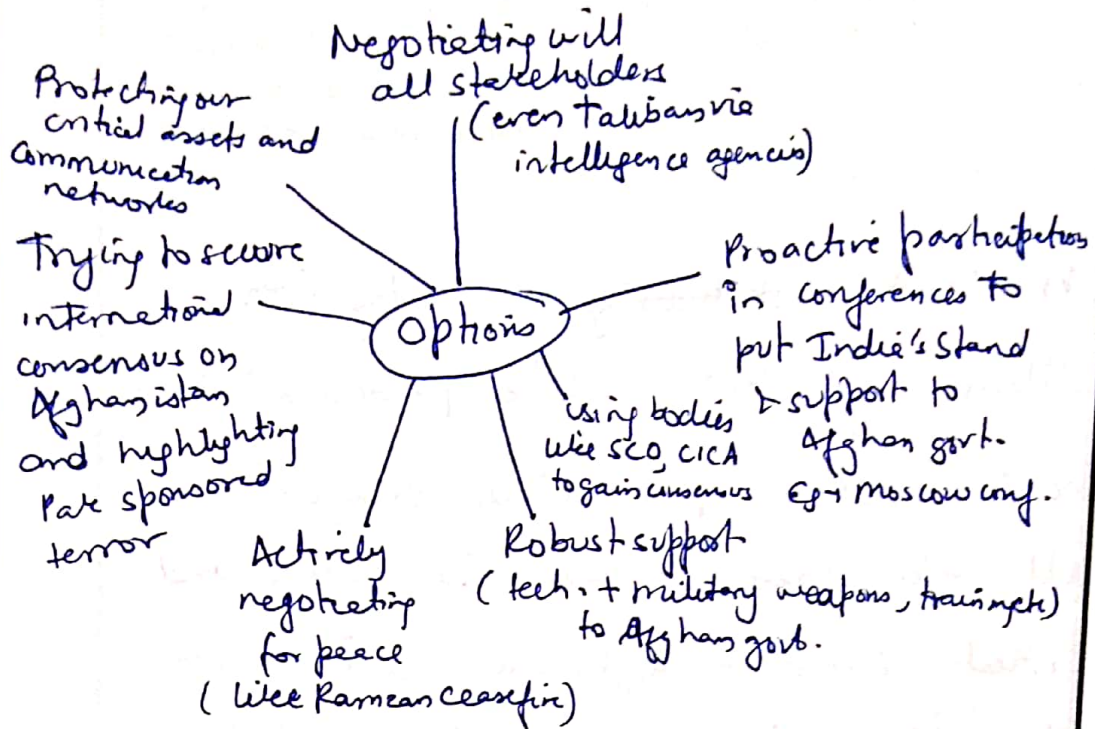 Negotieting will
all stakeholders
(even Taliban via
intelligence agencies)
Protecting our
critical assets and
communication
networks
Trying to secure
international
consensus on
Afghanistan
and highlighting
Pak sponsored
terror
Options
Proactive participation
in conferences to
put India's stand
& support to
Afghan govt.
Eg → Moscow conf.
using bodies
like SCO, CICA
to gain consensus
Robust support
(tech. + military weapons, training etc)
to Afghan govt.
Actively
negotiating
for peace
(like Ramzan ceasefire)